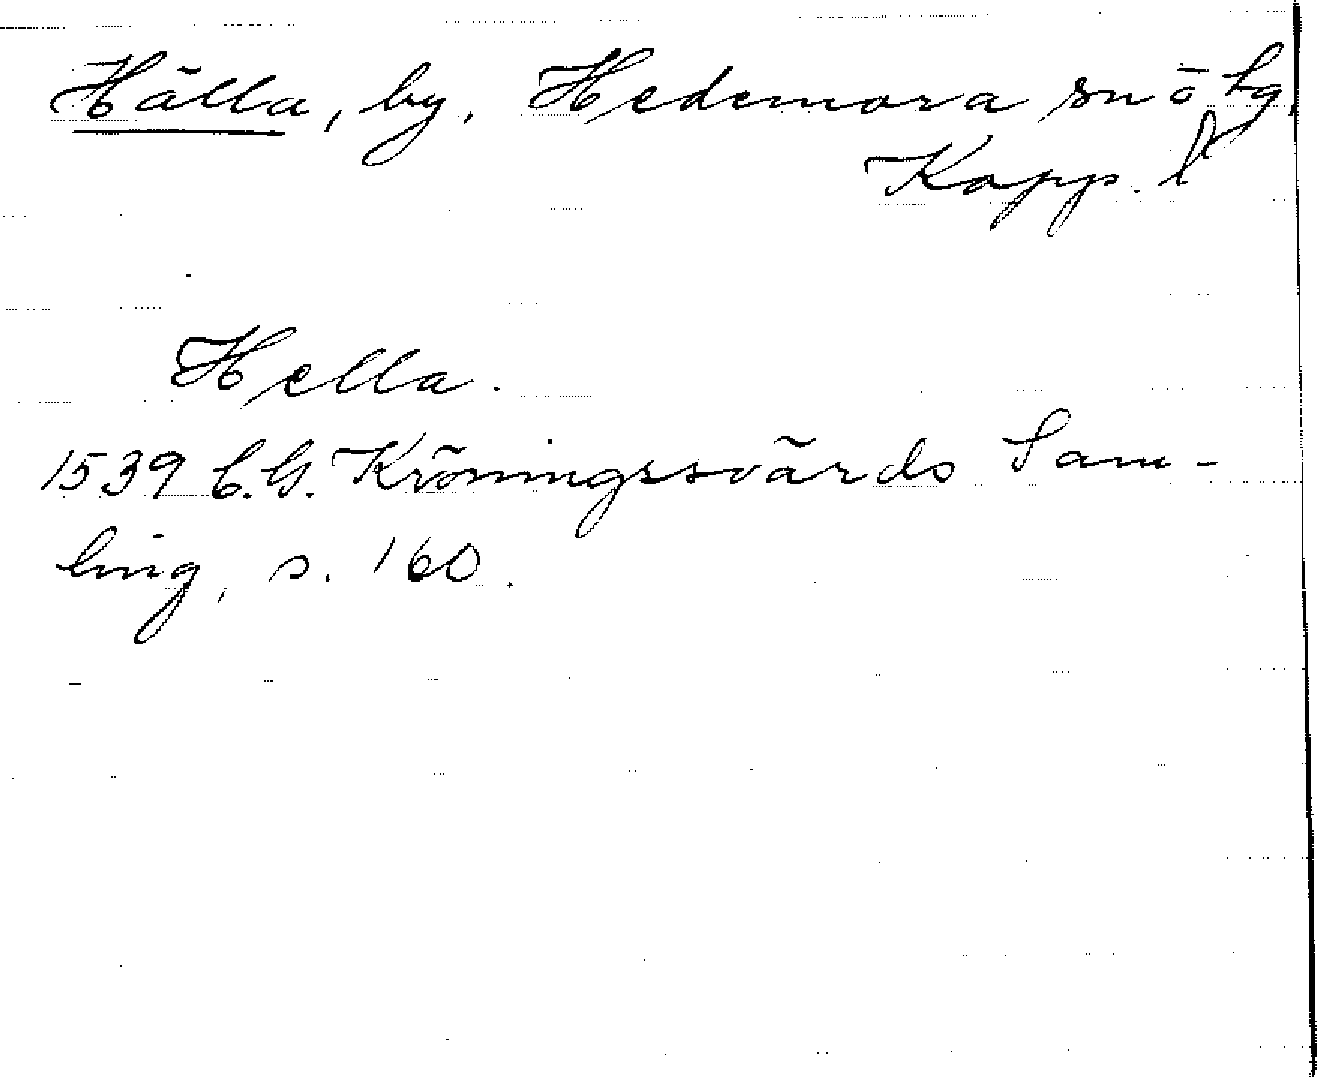 Hälla, by, Hedemora sn ö tg,
Kopp. l
Hella.
1539 C.G. Kröningssvärds Sam-
ling, s. 160.